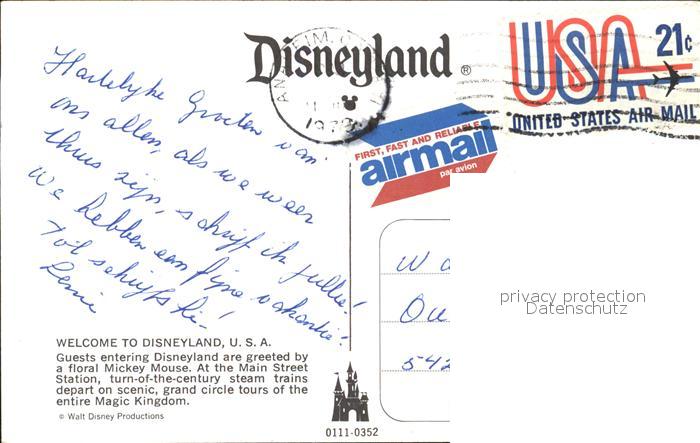 Disneyland®
ANAHEIM, C
1979
USA 21¢
UNITED STATES AIR MAIL
FIRST, FAST AND RELIABLE
airmail
par avion
Hartelyke Groeten van
ons allen, als we weer
thuis zijn, schrijf ik jullie!
We hebben een fijne vakantie!
Tot schrijfs hé!
W
Ou
542
privacy protection
Datenschutz
WELCOME TO DISNEYLAND, U. S. A.
Guests entering Disneyland are greeted by
a floral Mickey Mouse. At the Main Street
Station, turn-of-the-century steam trains
depart on scenic, grand circle tours of the
entire Magic Kingdom.
© Walt Disney Productions
0111-0352